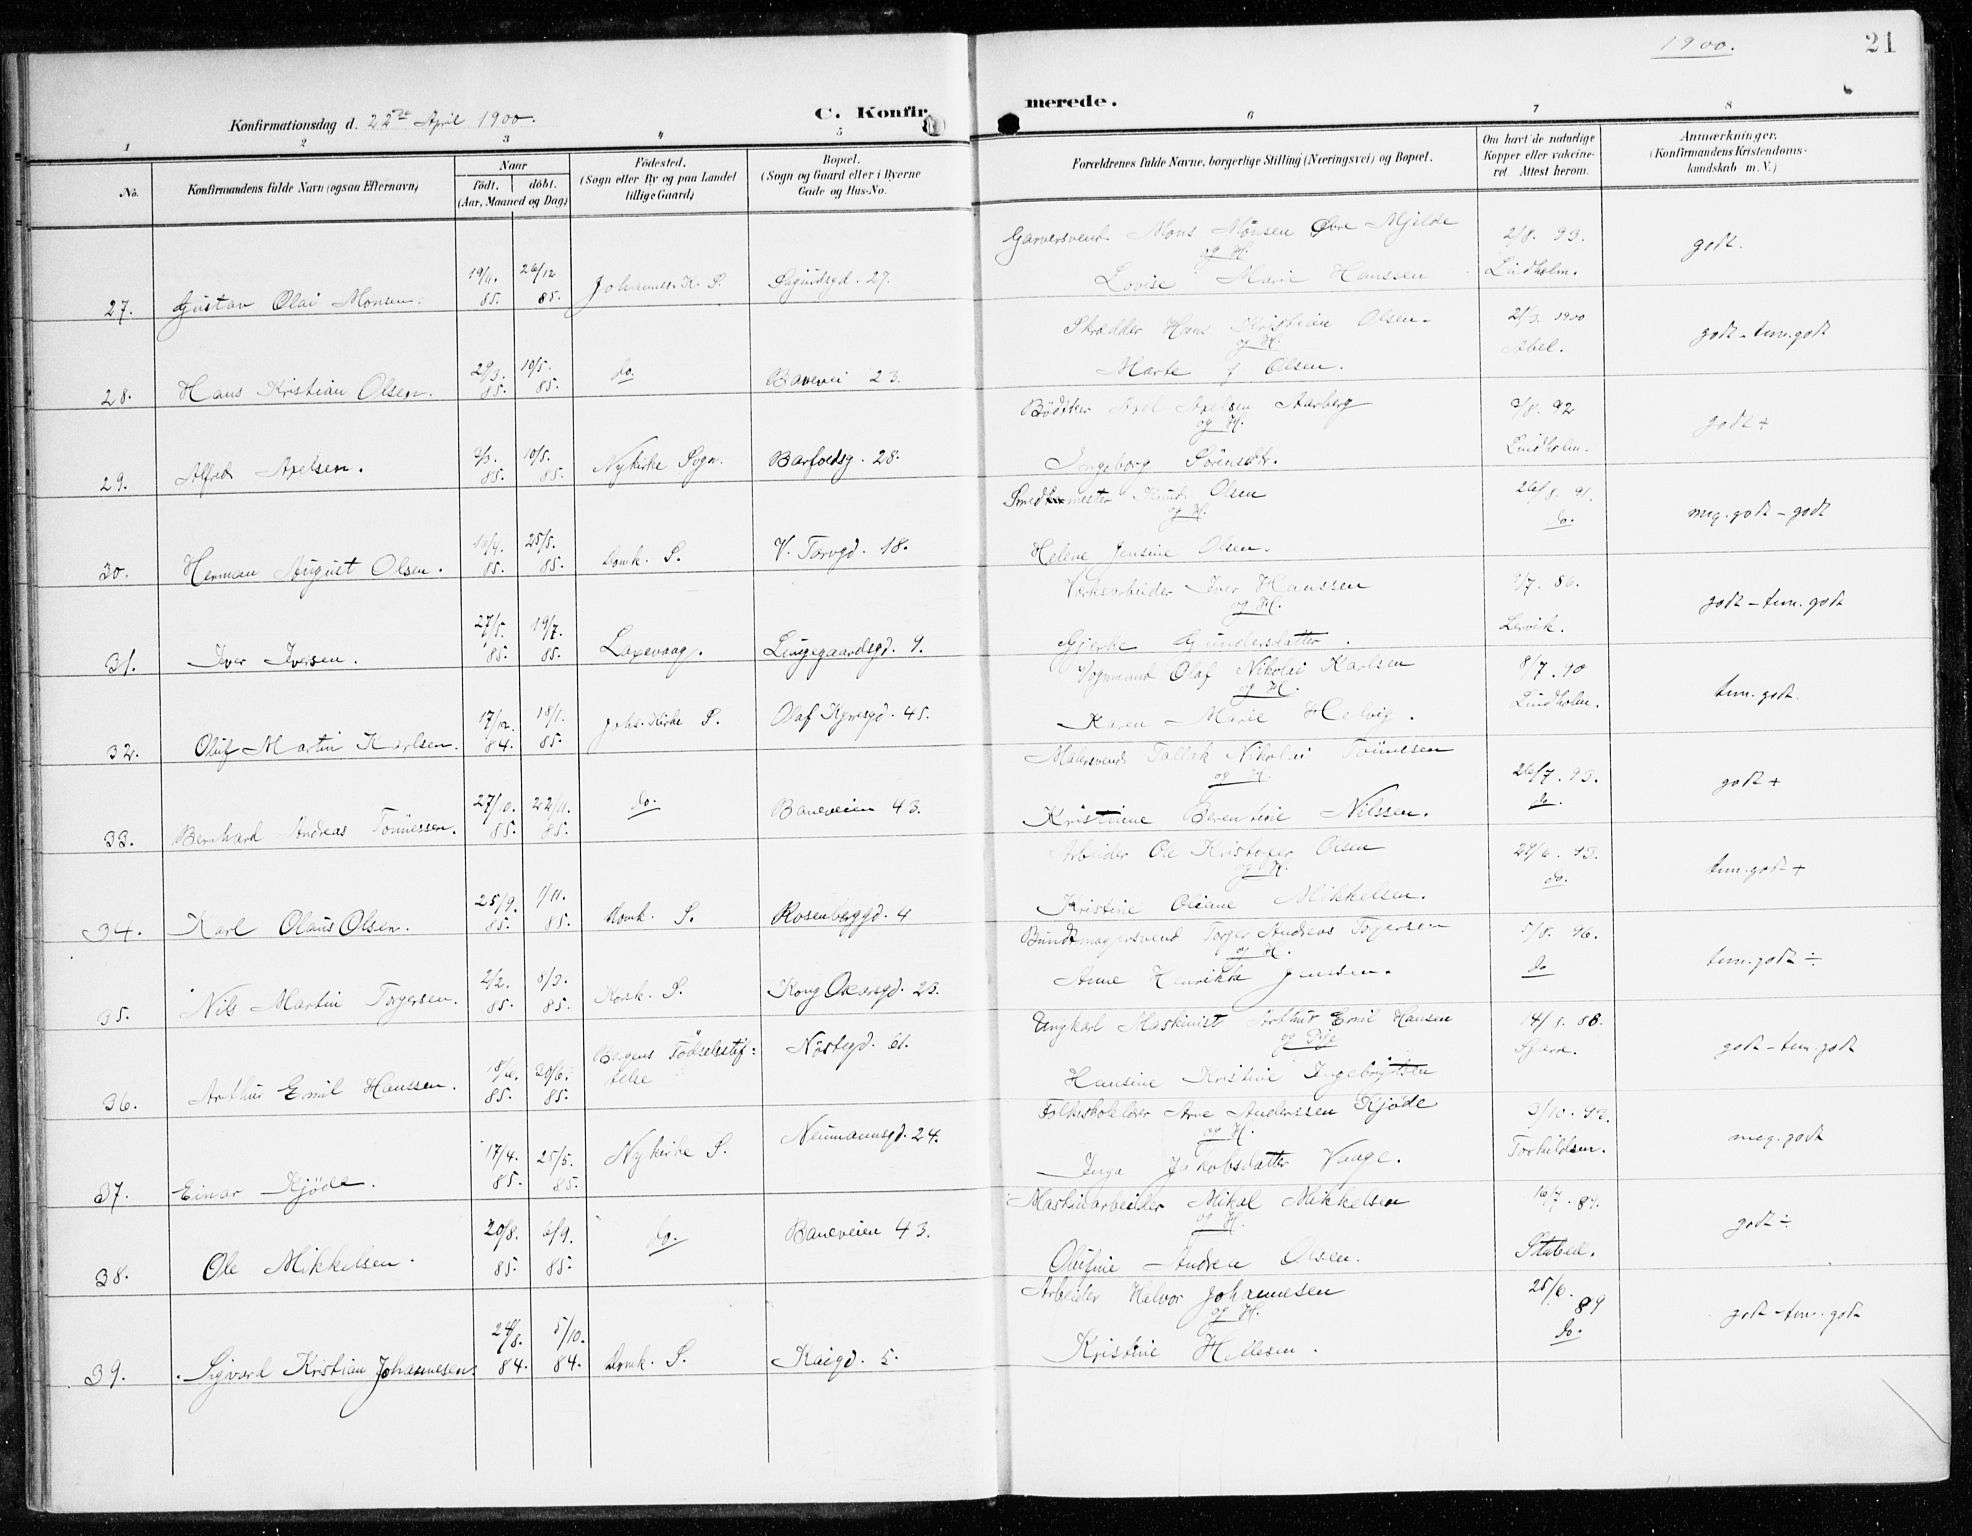 1900.
21
Konfirmationsdag d. 22de April 1900.
C. Konfir
merede.
1 2 3 4 5 6 7 8
No.
Konfirmandens fulde Navn (ogsaa Efternavn)
Naar
födt. döbt.
(Aar, Maaned og Dag)
Födested.
(Sogn eller By og paa Landet
tillige Gaard)
Bopæl.
(Sogn og Gaard eller i Byerne
Gade og Hus-No.
Forældrenes fulde Navne, borgerlige Stilling (Næringsvei) og Bopæl.
Om havt de naturlige
Kopper eller vakcine-
ret Attest herom.
Anmærkninger.
(Konfirmandens Kristendoms-
kundskab m. V.)
Garversvend Mons Monsen Øvre-Mjelde 2/8. 93.
og H.
19/11. 26/12 Lovise Marie Hanssen Lindholm. godt.
27. Gustav Olai Monsen. 85. 85. Johannes. K. S. Sigurdsgd. 27.
Skrædder Hans Kristian Olsen. 21/3. 1900
og H.
29/3. 10/5. Marte f Olsen. Abel. godt - tem. godt
28. Hans Kristian Olsen. 85. 85. do. Banevei 23.
Bödiker Axel Axelsen Aarberg 3/8. 92
og H.
10/5. Ingeborg Sörensdtr. Lindholm. godt +
29. Alfred Axelsen. 85. 85. Nykirke Sogn. Barfoedsg. 28.
Smedmester Knud Olsen 26/8. 91.
og H.
25/5. Helene Jensine Olsen. do. meg. godt - godt
30. Herman August Olsen. 85. 85. Domk. S. V. Torvgd. 18.
Verksarbeider Iver Hanssen 86.
og H.
27/5. 19/7. Gjerke Gundersdatter. Lervik. godt - tem. godt
31. Iver Iversen. 85. 85. Laxevaag. Lungegaardsgd. 9.
Vognmand Olaf Nikolai Karlsen 8/7. 90
og H.
17/12. 18/1. Karen Marie Helvig. Lindholm. tem. godt.
32. Oluf Martin Karlsen. 84. 85. Johs. Kirke S. Olaf Kyrresgd. 45.
Malersvend Tallak Nikolai Tönnesen 26/7. 95.
og H.
27/10. 22/11. Kristine Berentine Nilssen. do. godt +
33. Bernhard Andreas Tönnessen. 85. 85. do. Baneveien 43.
Arbeider Ole Kristofer Olsen
og H.
25/9. 1/11. Kristine Oliane Mikkelsen. do. tem. godt +
34. Karl Olaus Olsen. 85. 85. Domk. S. Rosenberggd. 4
Bundtmagersvend Torger Andreas Togersen 5/8. 96.
og H.
2/2. 8/3. Anne Henrikke Jenssen. do tem. godt ÷
35. Nils Martin Torgersen. 85. 85. Korsk. S. Kong Oscarsgd. 23.
Ungkarl Maskinist Arthur Emil Hansen
og Pige
20/6. Hansine Kristine Ingebrigtsen godt - tem. godt
36. Arthur Emil Hanssen. 85. 85. Bergens Födselsstif=
telse Nöstegd. 61.
Folkeskolelærer Arne Anderssen Kjöde 3/10. 92.
og H.
17/4. 25/5. Inga Jakobsdatter Vaage. Torkildsen. meg. godt
37. Einar Kjöde. 85. 85. Nykirke S. Neumannsgd. 24.
Maskinarbeider Mikal Mikkelsen 16/7. 87.
og H.
20/8. 6/9. Olufine Andrea Olsen. Stabell. godt ÷
38. Ole Mikkelsen. 85. 85. do. Baneveien 43.
Arbeider Halvor Johannesen 25/6. 89
og H.
24/8. 5/10. Kristine Hellesen. do. godt - tem. godt
39. Sigvard Kristian Johannesen. 84. 84. Domk. S. Kaigd. 5.